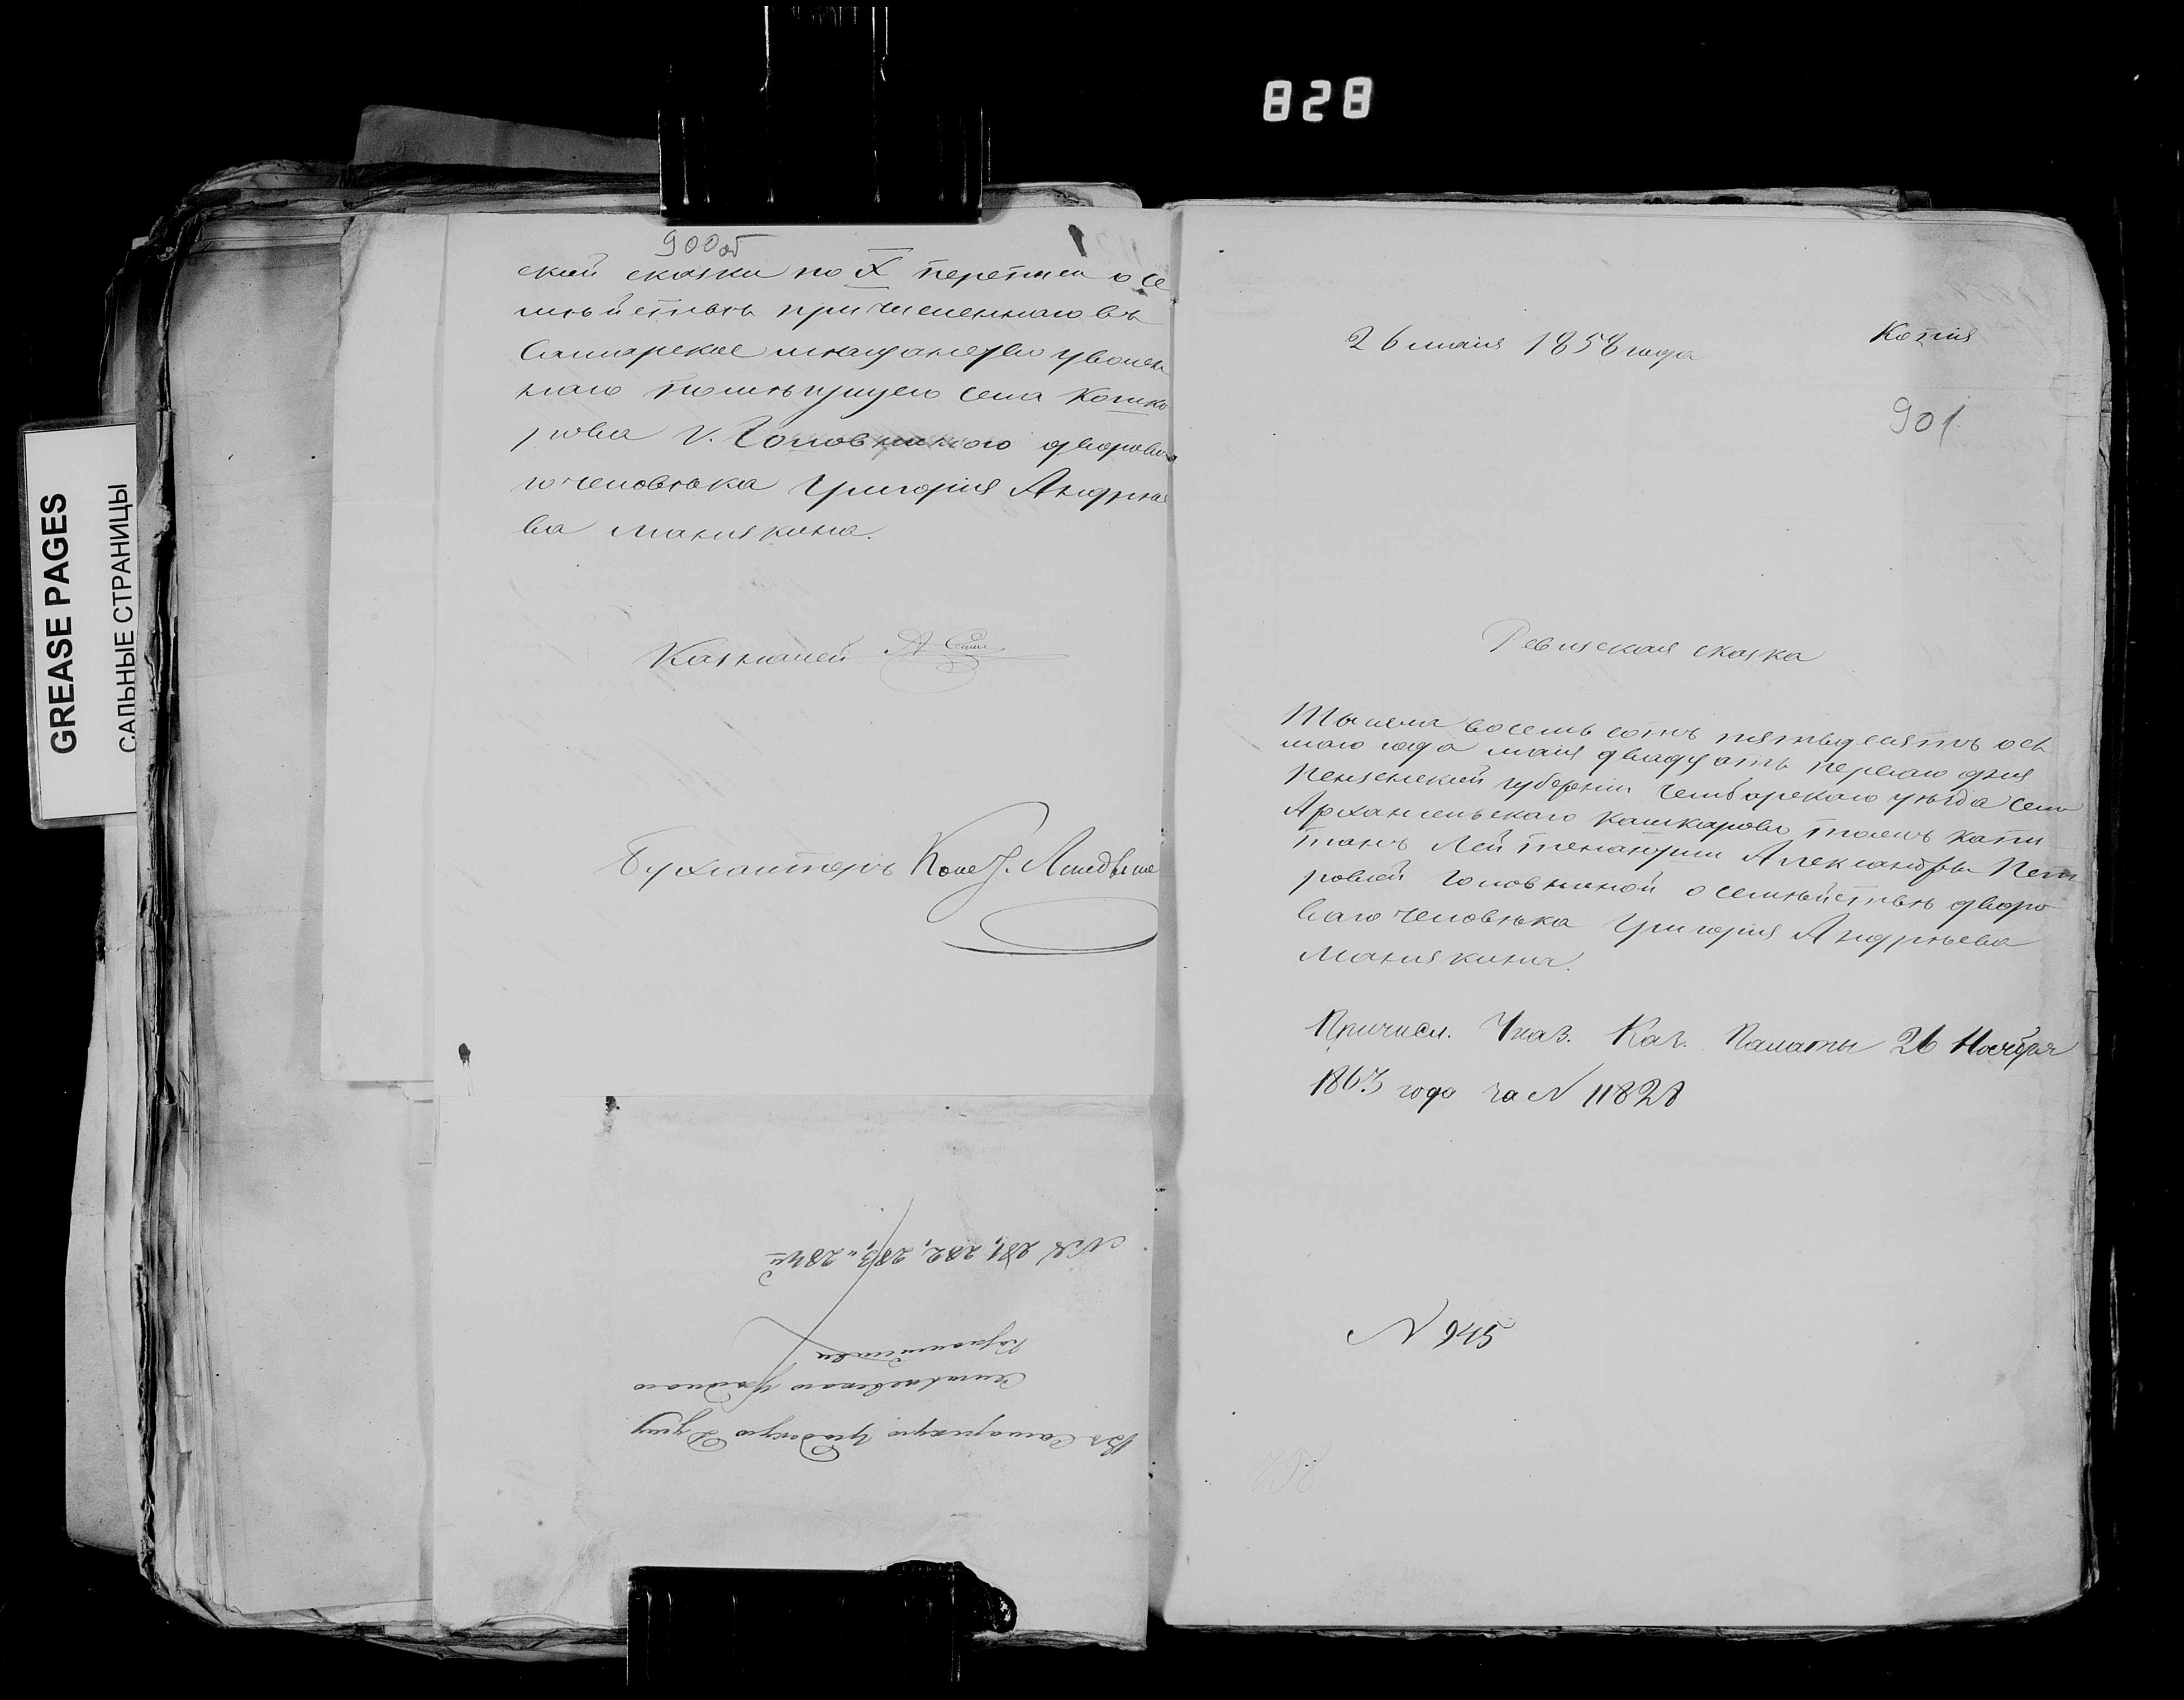 828
GREASE PAGES
САЛЬНЫЕ СТРАНИЦЫ
900об
ской сказки по X переписи о се
мѣйствѣ причисленнаго въ
Самарское мѣщанство уволен
наго помѣщицею села Кошка
рова г. Головниною дворова
го человѣка Григорія Андрѣе
ва Манякина.
Казначей А
Бухгалтеръ
№№ 281, 282, 283 и 284й
Въ Самарскую Градскую Думу
Уѣзднаго
Казначейства
26 мая 1858 года
Копія
901
Ревизская сказка
Тысяча восемь сотъ пятьдесятъ ось
маго года мая двадцать перваго дня
Пензенской губерніи Чембарскаго уѣзда села
Архангельскаго Кашкарово тожъ капи
танъ Лейтенантши Александры Пет
ровой Головниной о семѣйствѣ дворо
ваго человѣка Григорія Андрѣева
Манякина.
Причисл. Указ. Каз. Палаты 26 Ноября
1863 года за № 11828
№ 945